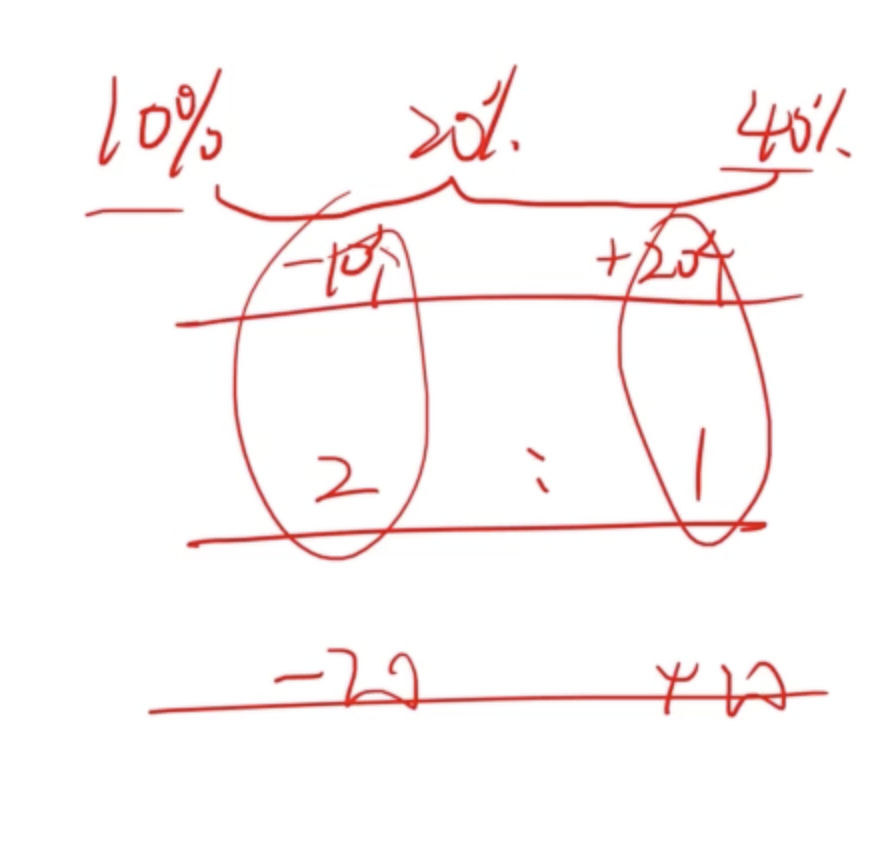 10% 20% 40%
-10% +20%
2 : 1
-20 +20